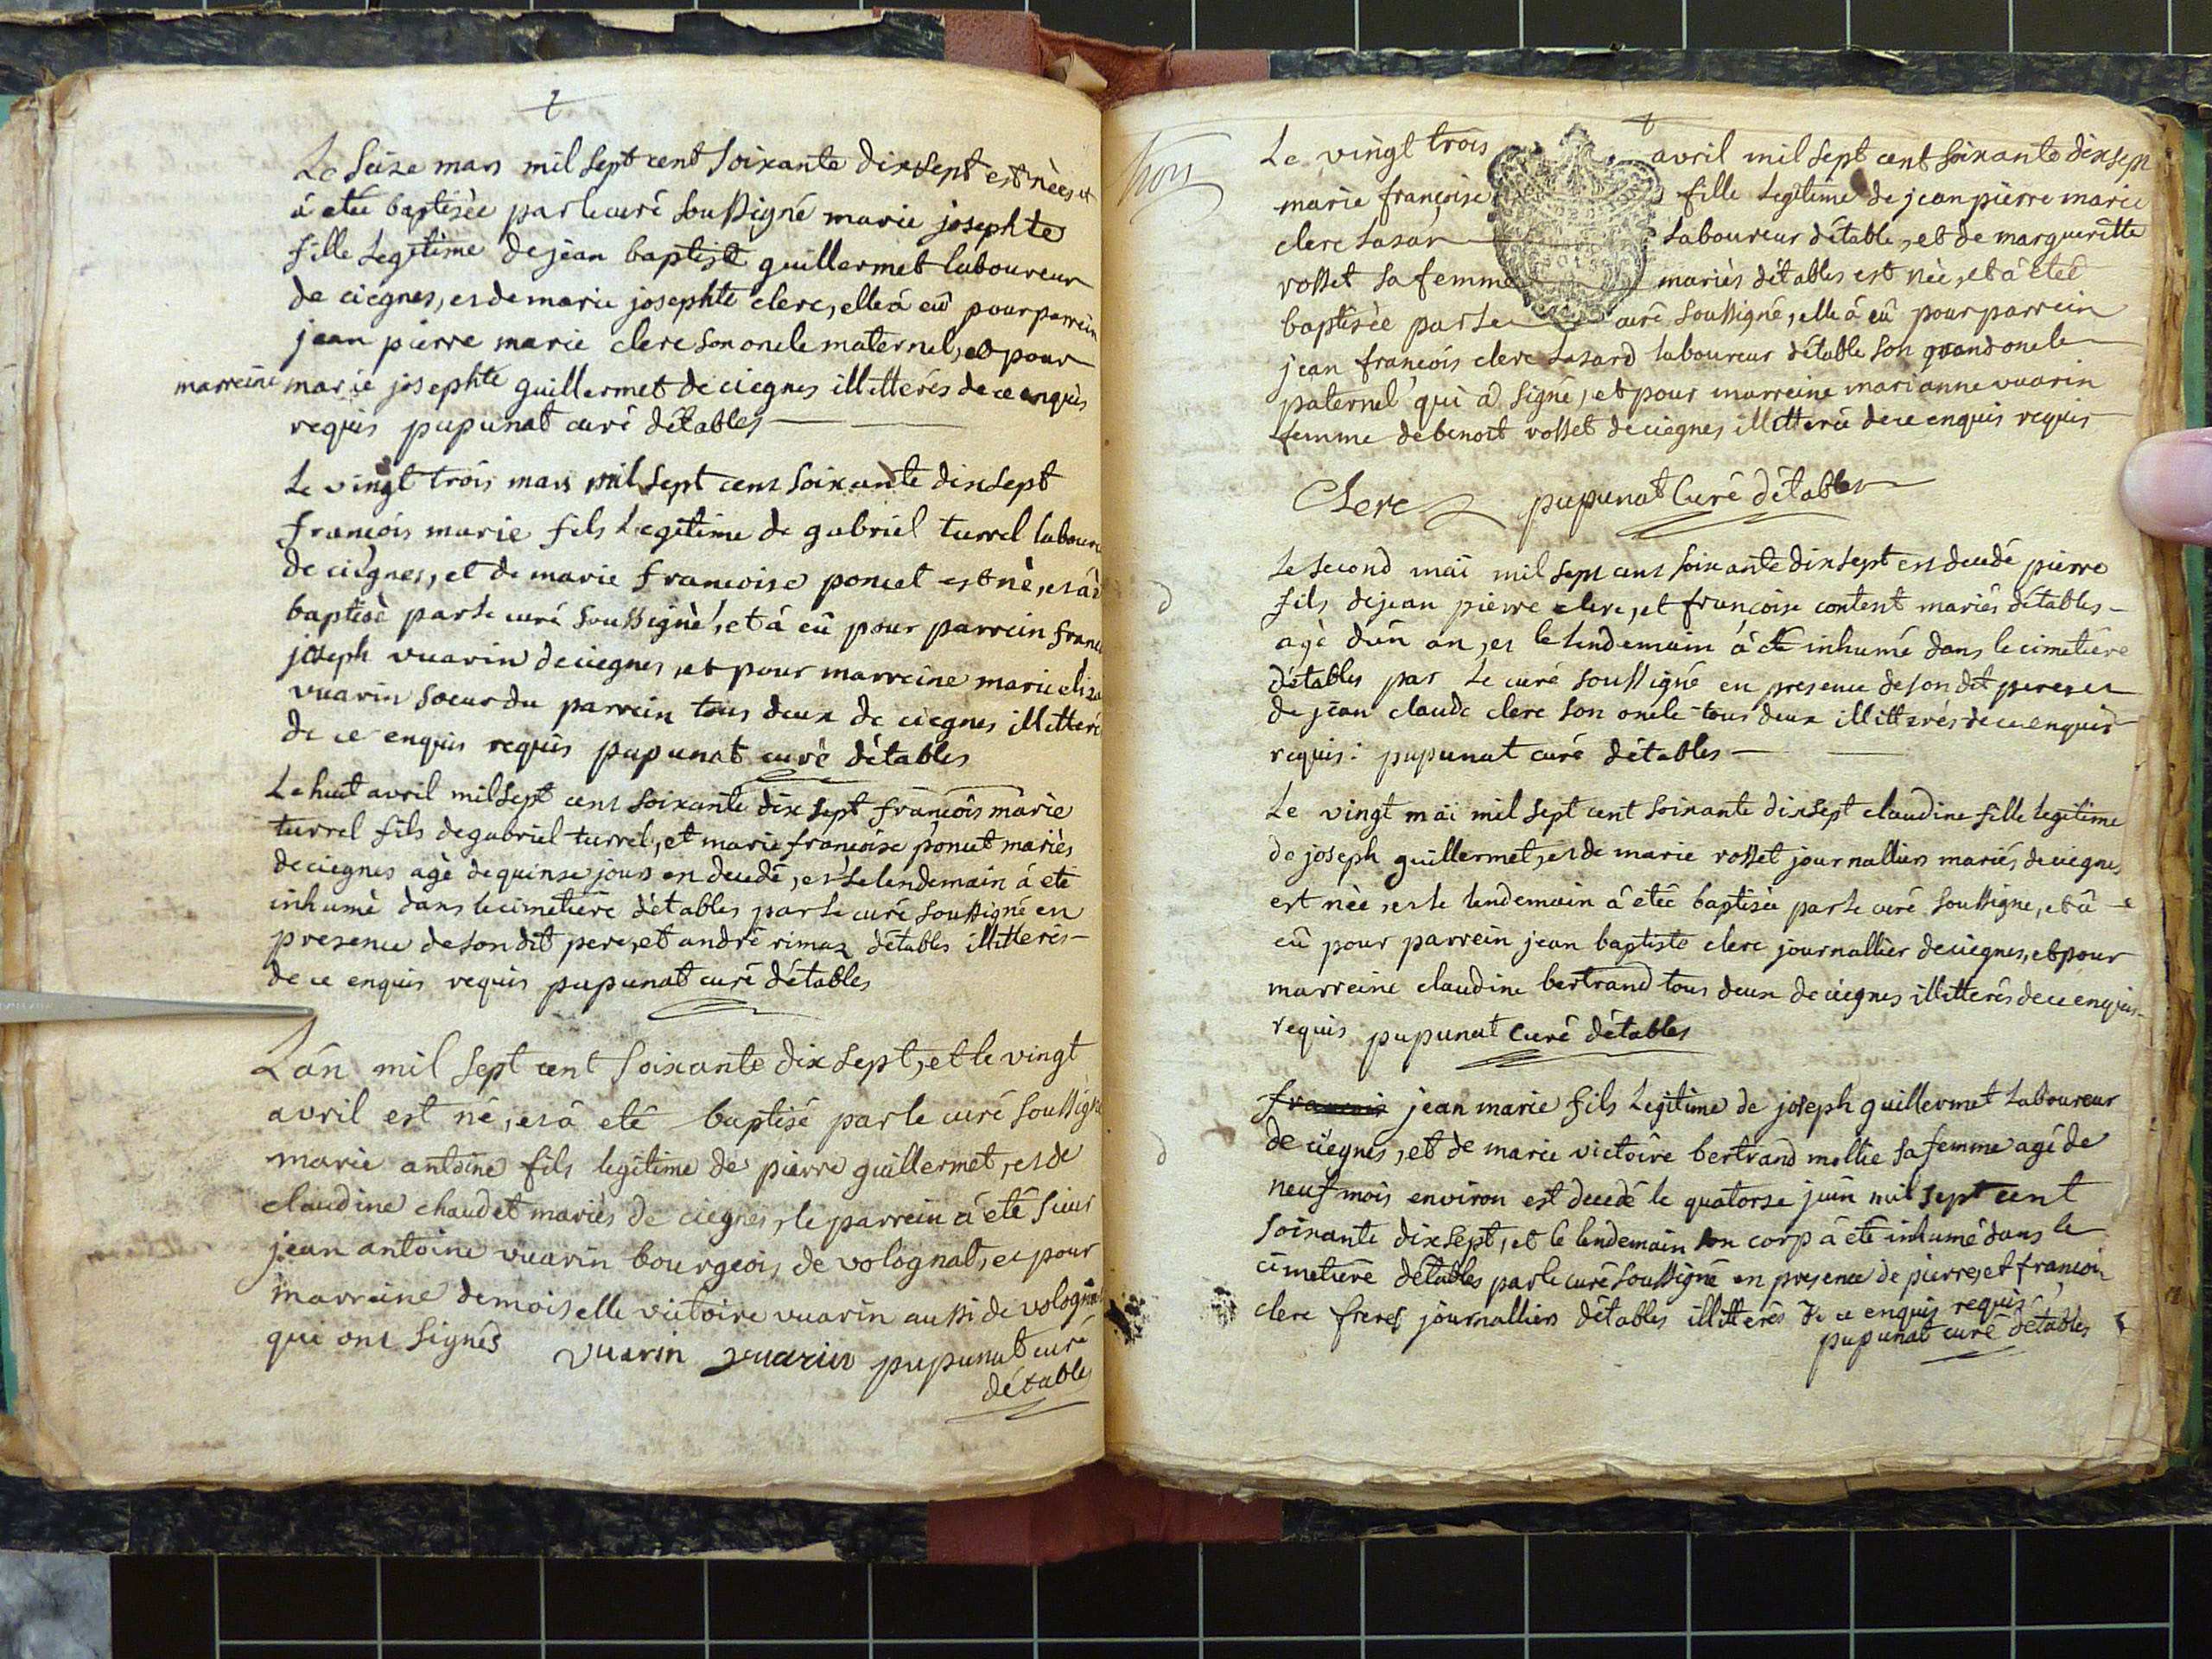 Le seize mars mil sept cent soixante dix sept est nèe, et
á etée baptisèe par le curé soussigné marie josephte
fille legitime de jean baptiste guillermet laboureur
de ciegnes, et de marie josephte clerc, elle á eû pour parrein
jean pierre marie clerc son oncle maternel, et pour
marreine marie josephte guillermet de ciegnes illitterés de ce enquis
requis pupunat curé détables
Le vingt trois mars mil sept cent soixante dix sept
françois marie fils legitime de gabriel turrel laboure
de ciegnes, et de marie francoise poncet est nè, et à é
baptisè par le curé soussignè, et á eû pour parrein franc
joseph vuarin de ciegnes, et pour marreine marie elisa
vuarin soeur du parrein tous deux de ciegnes illitteré
de ce enquis requis pupunat curè dètables
Le huit avril mil sept cent soixante dix sept françois marie
turrel fils de gabriel turrel, et marie françoise poncet mariès
de ciegnes agè de quinse jours en decedé, et le lendemain á eté
inhumè dans le cimetiere détables par le curé soussigné en
presence de son dit pere, et andré rimaz détables illitterés
de ce enquis requis pupunat curé détables
L'án mil sept cent soixante dix sept, et le vingt
avril est né, et á eté baptisé par le curé soussigné
marie antoine fils legitime de pierre guillermet, et de
claudine chaudet mariés de ciegnes, le parrein á eté sieur
jean antoine vuarin bourgeois de volognat, et pour
marreine demoiselle victoire vuarin aussi de volognat
qui ont signés vuarin vuarin pupunat curé
détables
trois
Le vingt trois avril mil sept cent soixante dix sept
marie françoise fille legitime de jean pierre marie
clerc lasar laboureur détables, et de margueritte
rosset sa femme mariès détables est nèe, et á eteé
baptisèe par le curé soussigné, elle á eû pour parrein
jean françois clerc lasard laboureur détable son grand oncle
paternel qui á signé, et pour marreine marianne vuarin
femme de benoit rosset de ciegnes illitterée de ce enquis requis
Clerc pupunat Curé détables
d
Le second mai mil sept cent soixante dix sept en decedé pierre
fils de jean pierre clerc, et françoise content mariés détables
agè d'ún an, et le lendemain á été inhumé dans le cimetiere
détables par le curé soussigné en presence de son dit pere et
de jean claude clerc son oncle tous deux illitterés de ce enquis
requis: pupunat curé détables
Le vingt mai mil sept cent soixante dix sept claudine fille legitime
de joseph guillermet, et de marie rosset journalliers mariés de ciegnes
est nèe, et le lendemain á etée baptisée par le curé soussigne, et á
eû pour parrein jean baptiste clerc journallier de ciegnes, et pour
marreine claudine bertrand tous deux de ciegnes illitterés de ce enquis
requis pupunat Curé détables
françois jean marie fils legitime de joseph guillermet laboureur
d
de ciegnes, et de marie victoire bertrand mollie sa femme agé de
neuf mois environ est decedé le quatorse juin mil sept cent
soixante dix sept, et le lendemain son corp á eté inhumé dans le
cimetiere détables par le curé soussigné en presence de pierre, et françois
clerc freres journalliers détables illitterés de ce enquis requis
pupunat curé détables